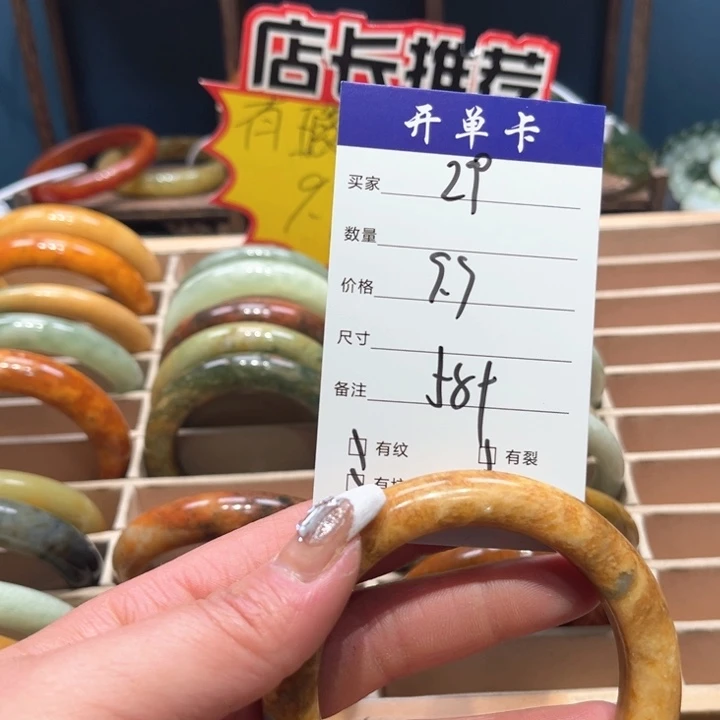 店长推荐
有
9.
开单卡
买家 29
数量
价格 9.9
尺寸
备注
有纹 有裂
有